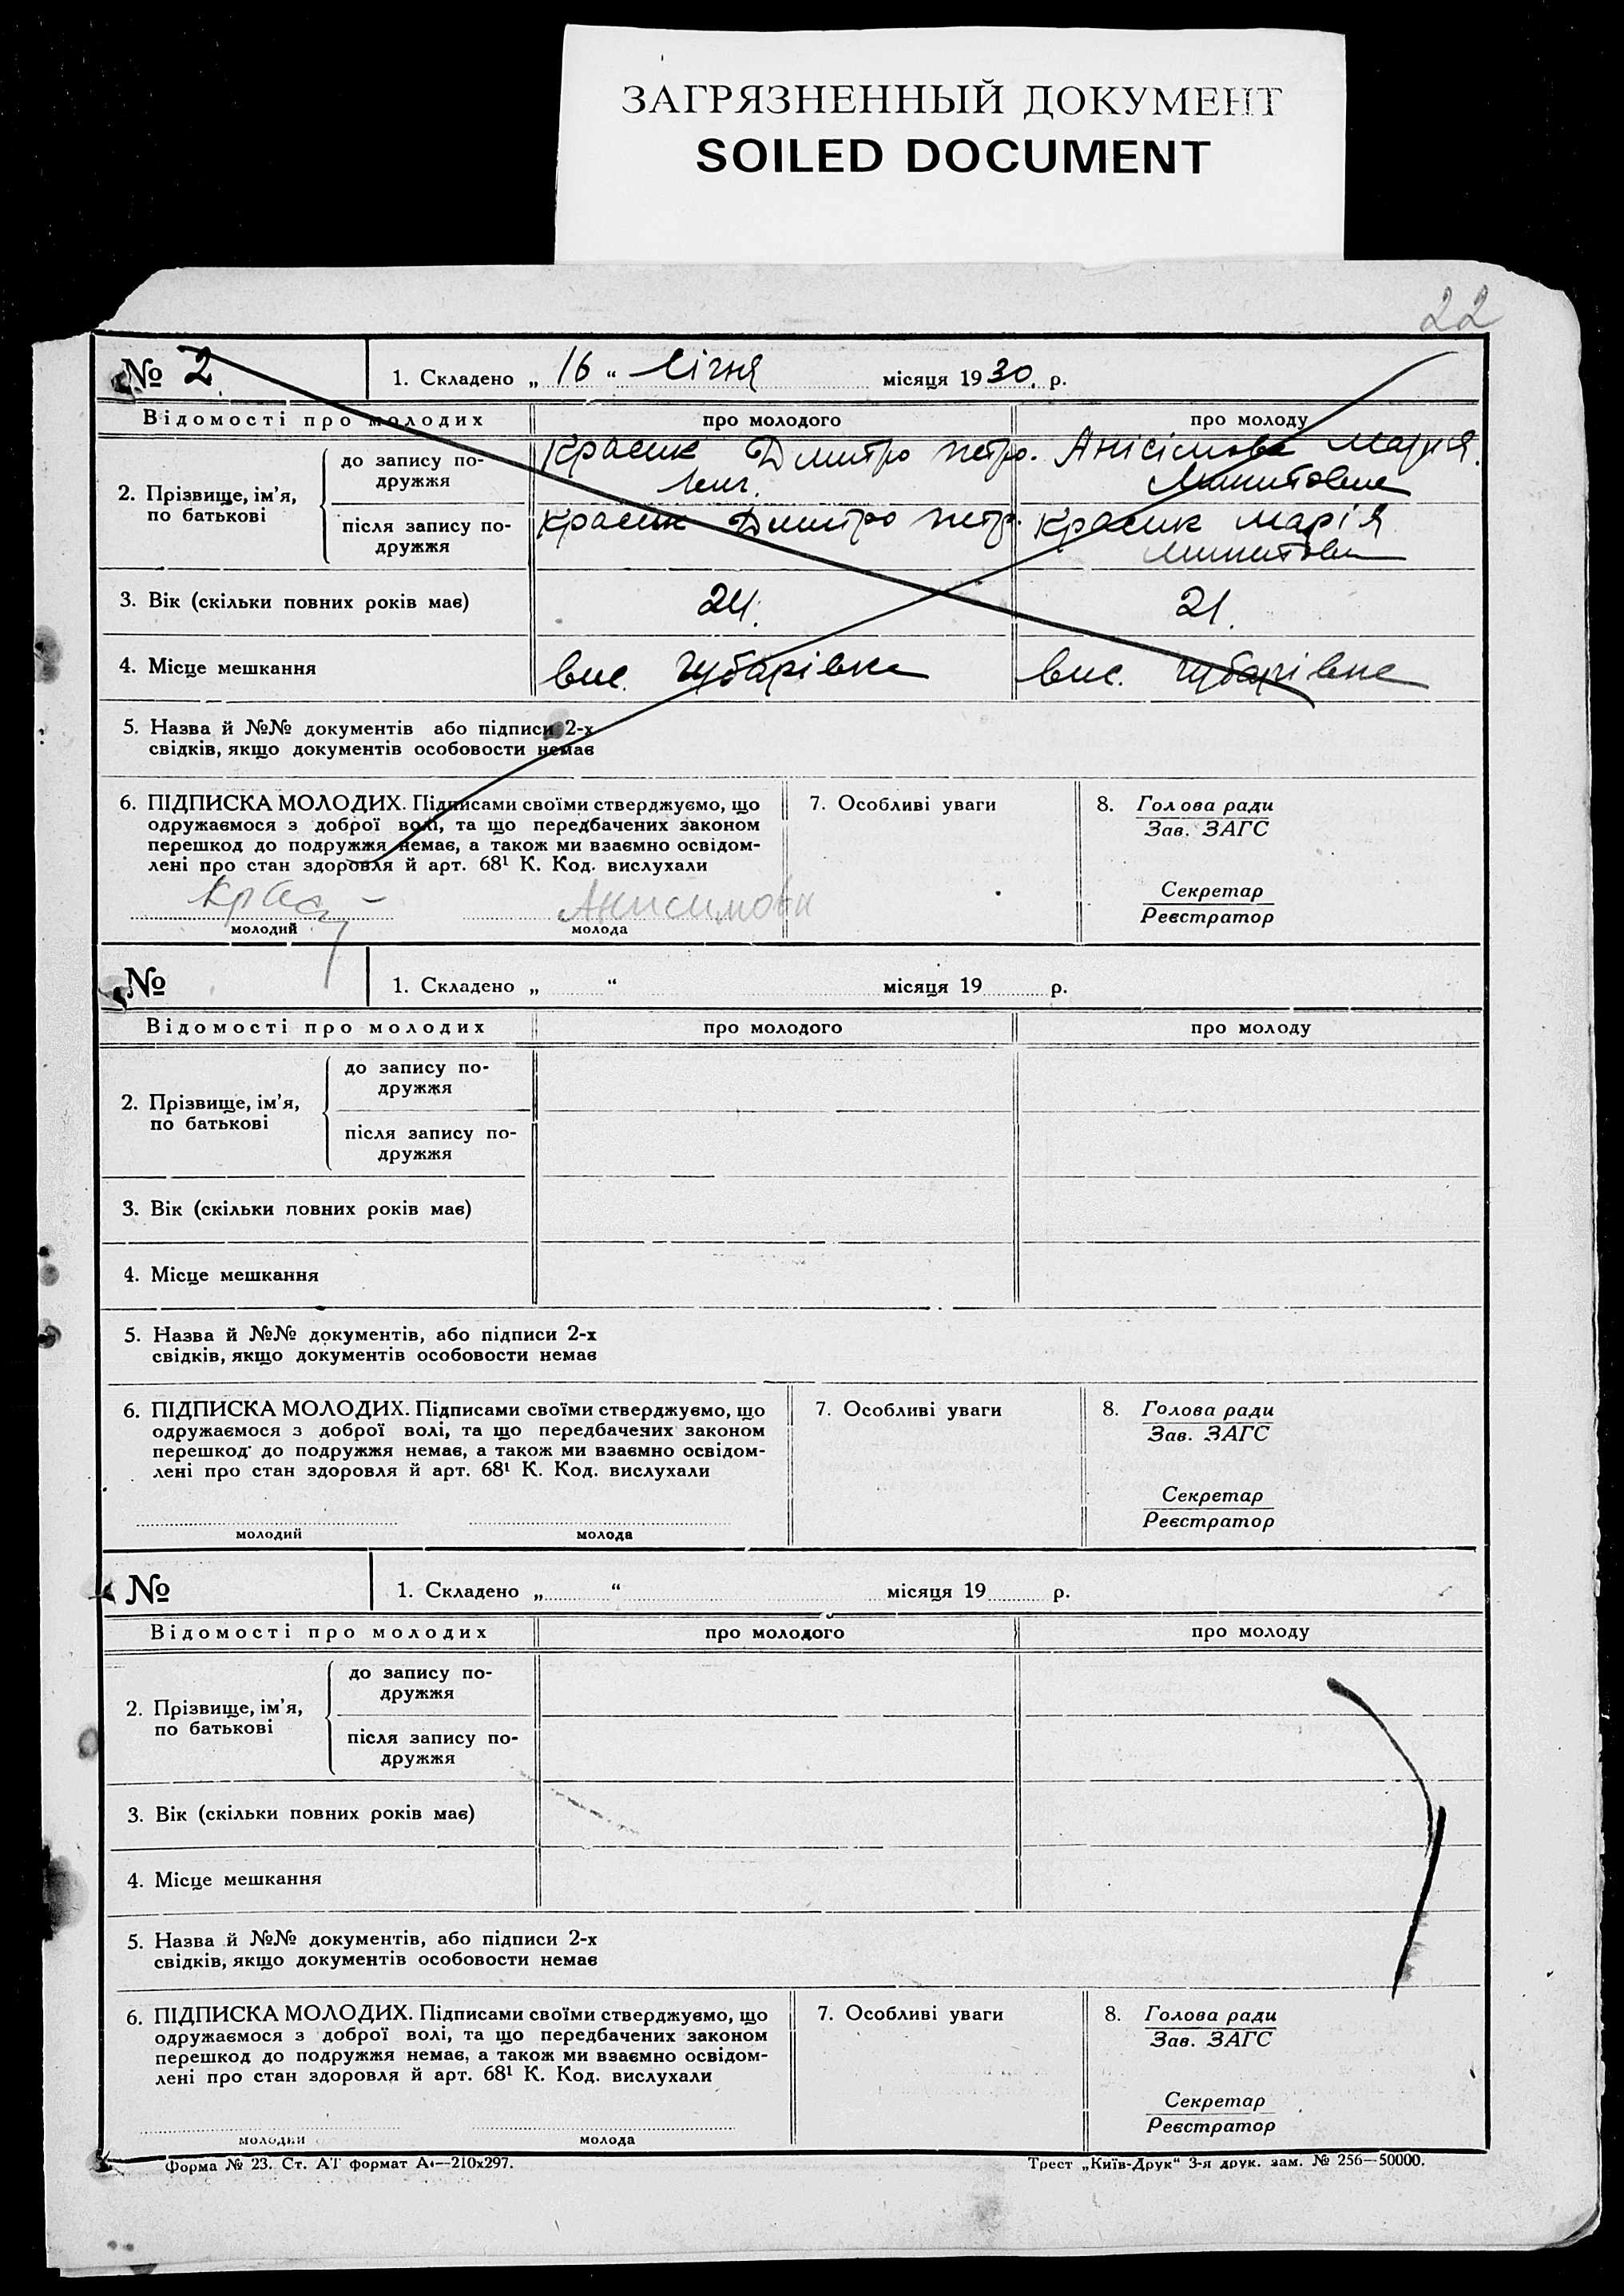 ЗАГРЯЗНЕННЫЙ ДОКУМЕНТ
SOILED DOCUMENT
22
№ 2
1. Складено „ 16 “ Січня місяця 1930. р.
Відомості про молодих
про молодого
про молоду
2. Прізвище, ім'я,
по батькові
до запису по-
дружжя
Красик Дмитро Петро.
Анісімова Марія.
Микитовна
після запису по-
дружжя
Красик Дмитро Петр.
Красик Марія
3. Вік (скільки повних років має)
24.
21.
4. Місце мешкання
вис. Чубарівка
вис. Чубарівка
5. Назва й №№ документів або підписи 2-х
свідків, якщо документів особовости немає
6. ПІДПИСКА МОЛОДИХ. Підписами своїми стверджуємо, що
одружаємося з доброї волі, та що передбачених законом
перешкод до подружжя немає, а також ми взаємно освідом-
лені про стан здоровля й арт. 68¹ К. Код. вислухали
Анисимова
молодий
молода
7. Особливі уваги
8. Голова ради
Зав. ЗАГС
Секретар
Реєстратор
№
1. Складено „ “ місяця 19 р.
Відомості про молодих
про молодого
про молоду
2. Прізвище, ім'я,
по батькові
до запису по-
дружжя
після запису по-
дружжя
3. Вік (скільки повних років має)
4. Місце мешкання
5. Назва й №№ документів, або підписи 2-х
свідків, якщо документів особовости немає
6. ПІДПИСКА МОЛОДИХ. Підписами своїми стверджуємо, що
одружаємося з доброї волі, та що передбачених законом
перешкод до подружжя немає, а також ми взаємно освідом-
лені про стан здоровля й арт. 68¹ К. Код. вислухали
молодий
молода
7. Особливі уваги
8. Голова ради
Зав. ЗАГС
Секретар
Реєстратор
№
1. Складено „ “ місяця 19 р.
Відомості про молодих
про молодого
про молоду
2. Прізвище, ім'я,
по батькові
до запису по-
дружжя
після запису по-
дружжя
3. Вік (скільки повних років має)
4. Місце мешкання
5. Назва й №№ документів, або підписи 2-х
свідків, якщо документів особовости немає
6. ПІДПИСКА МОЛОДИХ. Підписами своїми стверджуємо, що
одружаємося з доброї волі, та що передбачених законом
перешкод до подружжя немає, а також ми взаємно освідом-
лені про стан здоровля й арт. 68¹ К. Код. вислухали
молодий
молода
7. Особливі уваги
8. Голова ради
Зав. ЗАГС
Секретар
Реєстратор
Форма № 23. Ст. АТ формат А4—210х297.
Трест „Київ-Друк“ 3-я друк. зам. № 256—50000.